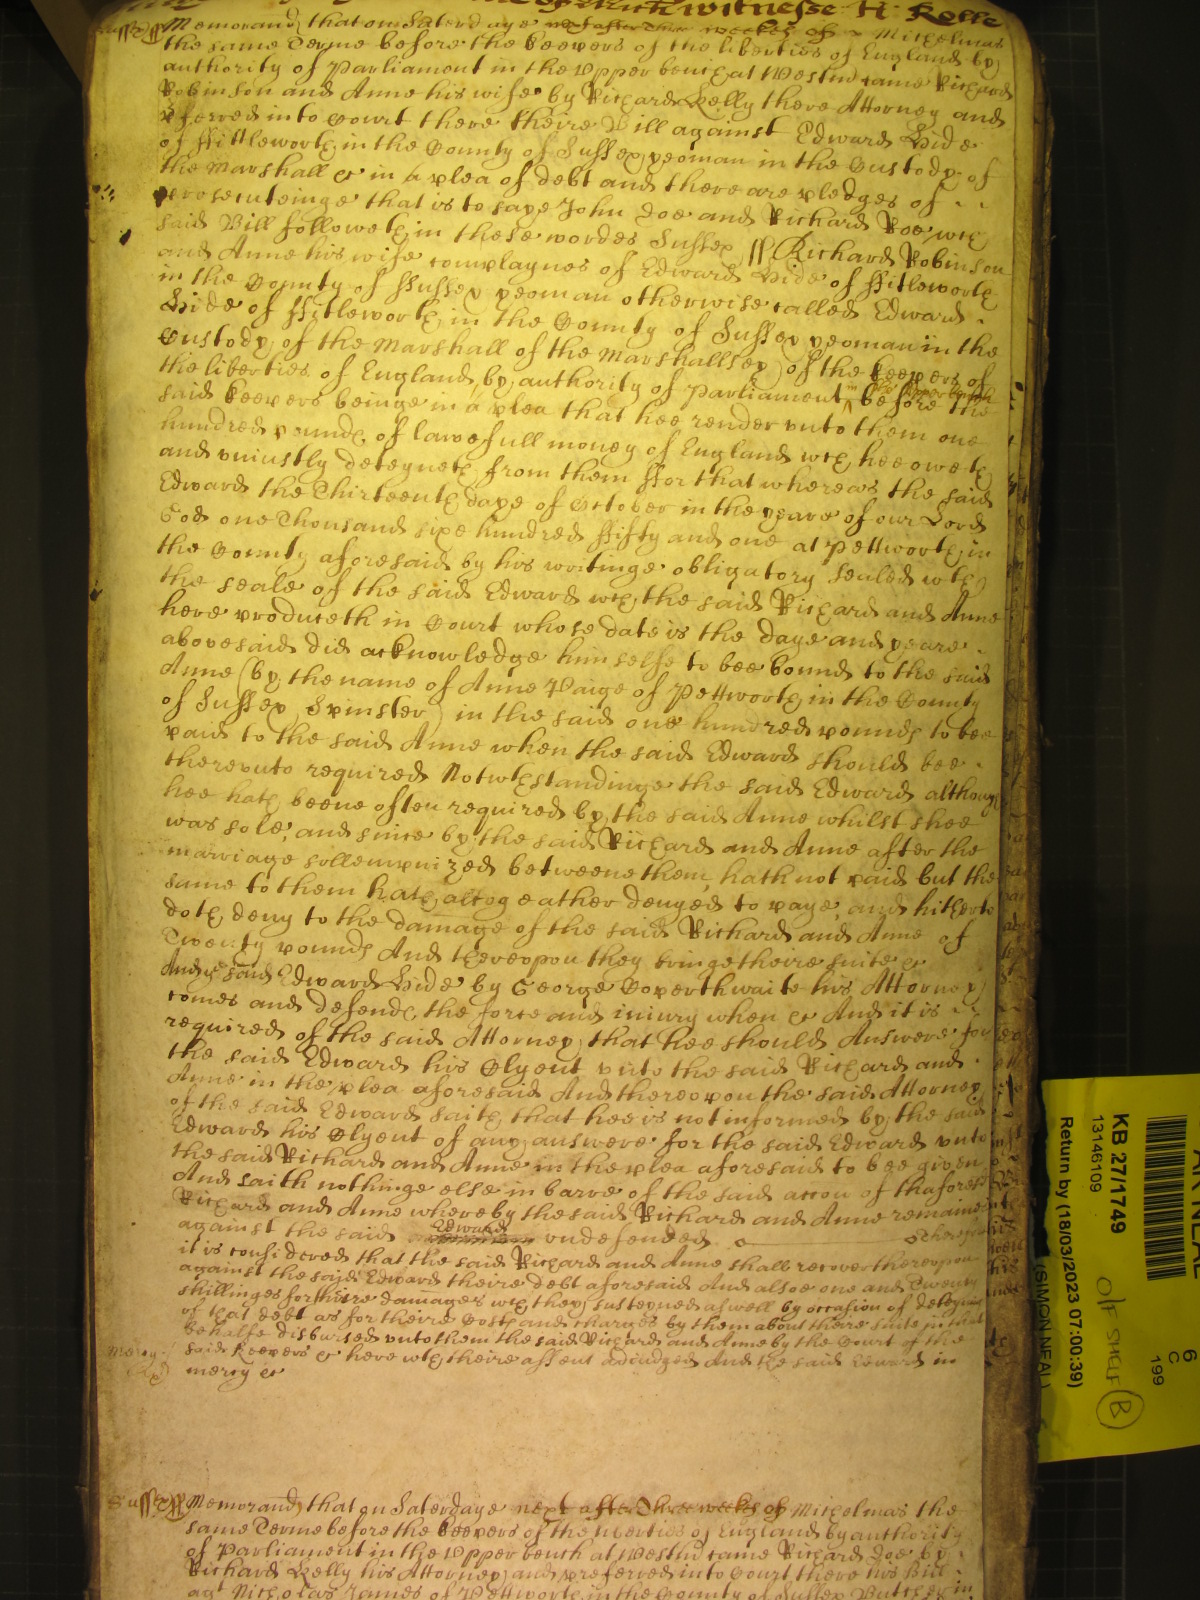 witnesse H Rolle
Sussex ss Memorand that on Saterdaye next after Three weekes of Michelmas
the same Terme before the keepers of the liberties of England by
authority of Parliament in the Upper bench at Westm came Richard
Robinson and Anne his wife by Richard Kelly there Attorney and
pferred into Court there theire Bill against Edward Hide
of ffittleworth in the County of Sussex yeoman in the Custody of
the Marshall &c in a plea of debt and there are pledges of
prosecuteinge that is to saye John Doe and Richard Roe wch
said Bill followeth in these wordes Sussex ss Richard Robinson
and Anne his wife complaynes of Edward Hide of ffitleworth
in the County of Sussex yeoman otherwise called Edward
Hide of ffitleworth in the County of Sussex yeoman in the
Custody of the Marshall of the Marshallsey of the keepers of
the liberties of England by authority of Parliament before the
said keepers beinge in a plea that hee render unto them one
hundred pounds of lawefull money of England wch hee oweth
and uniustly deteyneth from them ffor that whereas the said
Edward the Thirteenth daye of October in the yeare of our Lord
God one Thousand sixe hundred ffifty and one at Pettworth in
the County aforesaid by his writinge obligatory sealed wth
the seale of the said Edward wch the said Richard and Anne
here produceth in Court whose date is the daye and yeare
abovesaid did acknowledge himselfe to bee bound to the said
Anne (by the name of Anne Paige of Pettworth in the County
of Sussex Spinster) in the said one hundred pounds to bee
paid to the said Anne when the said Edward should bee
thereunto required Notwthstandinge the said Edward although
hee hath beene often required by the said Anne whilst shee
was sole, and since by the said Richard and Anne after the
marriage sollempnized betweene them, hath not paid but the
same to them hath altogeather denyed to paye, and hitherto
doth deny to the damage of the said Richard and Anne of
Twenty pounds And thereupon they bringe theire suite &c
And ye said Edward Hide by George Coperthwaite his Attorney
comes and defends the force and iniury when &c And it is
required of the said Attorney that hee should Answere for
the said Edward his Clyent unto the said Richard and
Anne in the plea aforesaid And thereupon the said Attorney
of the said Edward saith that hee is not informed by the said
Edward his Clyent of any answere for the said Edward unto
the said Richard and Anne in the plea aforesaid to bee given
And saith nothinge else in barre of the said accon of thaforesd
Richard and Anne whereby the said Richard and Anne remaine
against the said Edward undefended Therefore
it is considered that the said Richard and Anne shall recover thereupon
against the said Edward theire debt aforesaid And alsoe one and Twenty
shillinges for theire damages wch they susteyned aswell by occasion of deteyninge
of that debt as for theire Costs and charges by them about theire suite in that
behalfe disbursed unto them the said Richard and Anne by the Court of the
said Keepers &c here wth theire assent adiudged And the said Edward in
mercy &c
Mercy
Sussex ss Memorand that on Saterdaye next after Three weekes of Michelmas the
same Terme before the keepers of the liberties of England by authority
of Parliament in the Upper bench at Westm came Richard Doe by
Richard Kelly his Attorney and preferred into Court there his Bill
agt Nicholas James of Pettworth in the County of Sussex Butcher in
KB 27/1749
13146109
Return by (18/03/2023 07:00:39)
(SIMON NEAL)
O/F SHELF
B
6
C
199